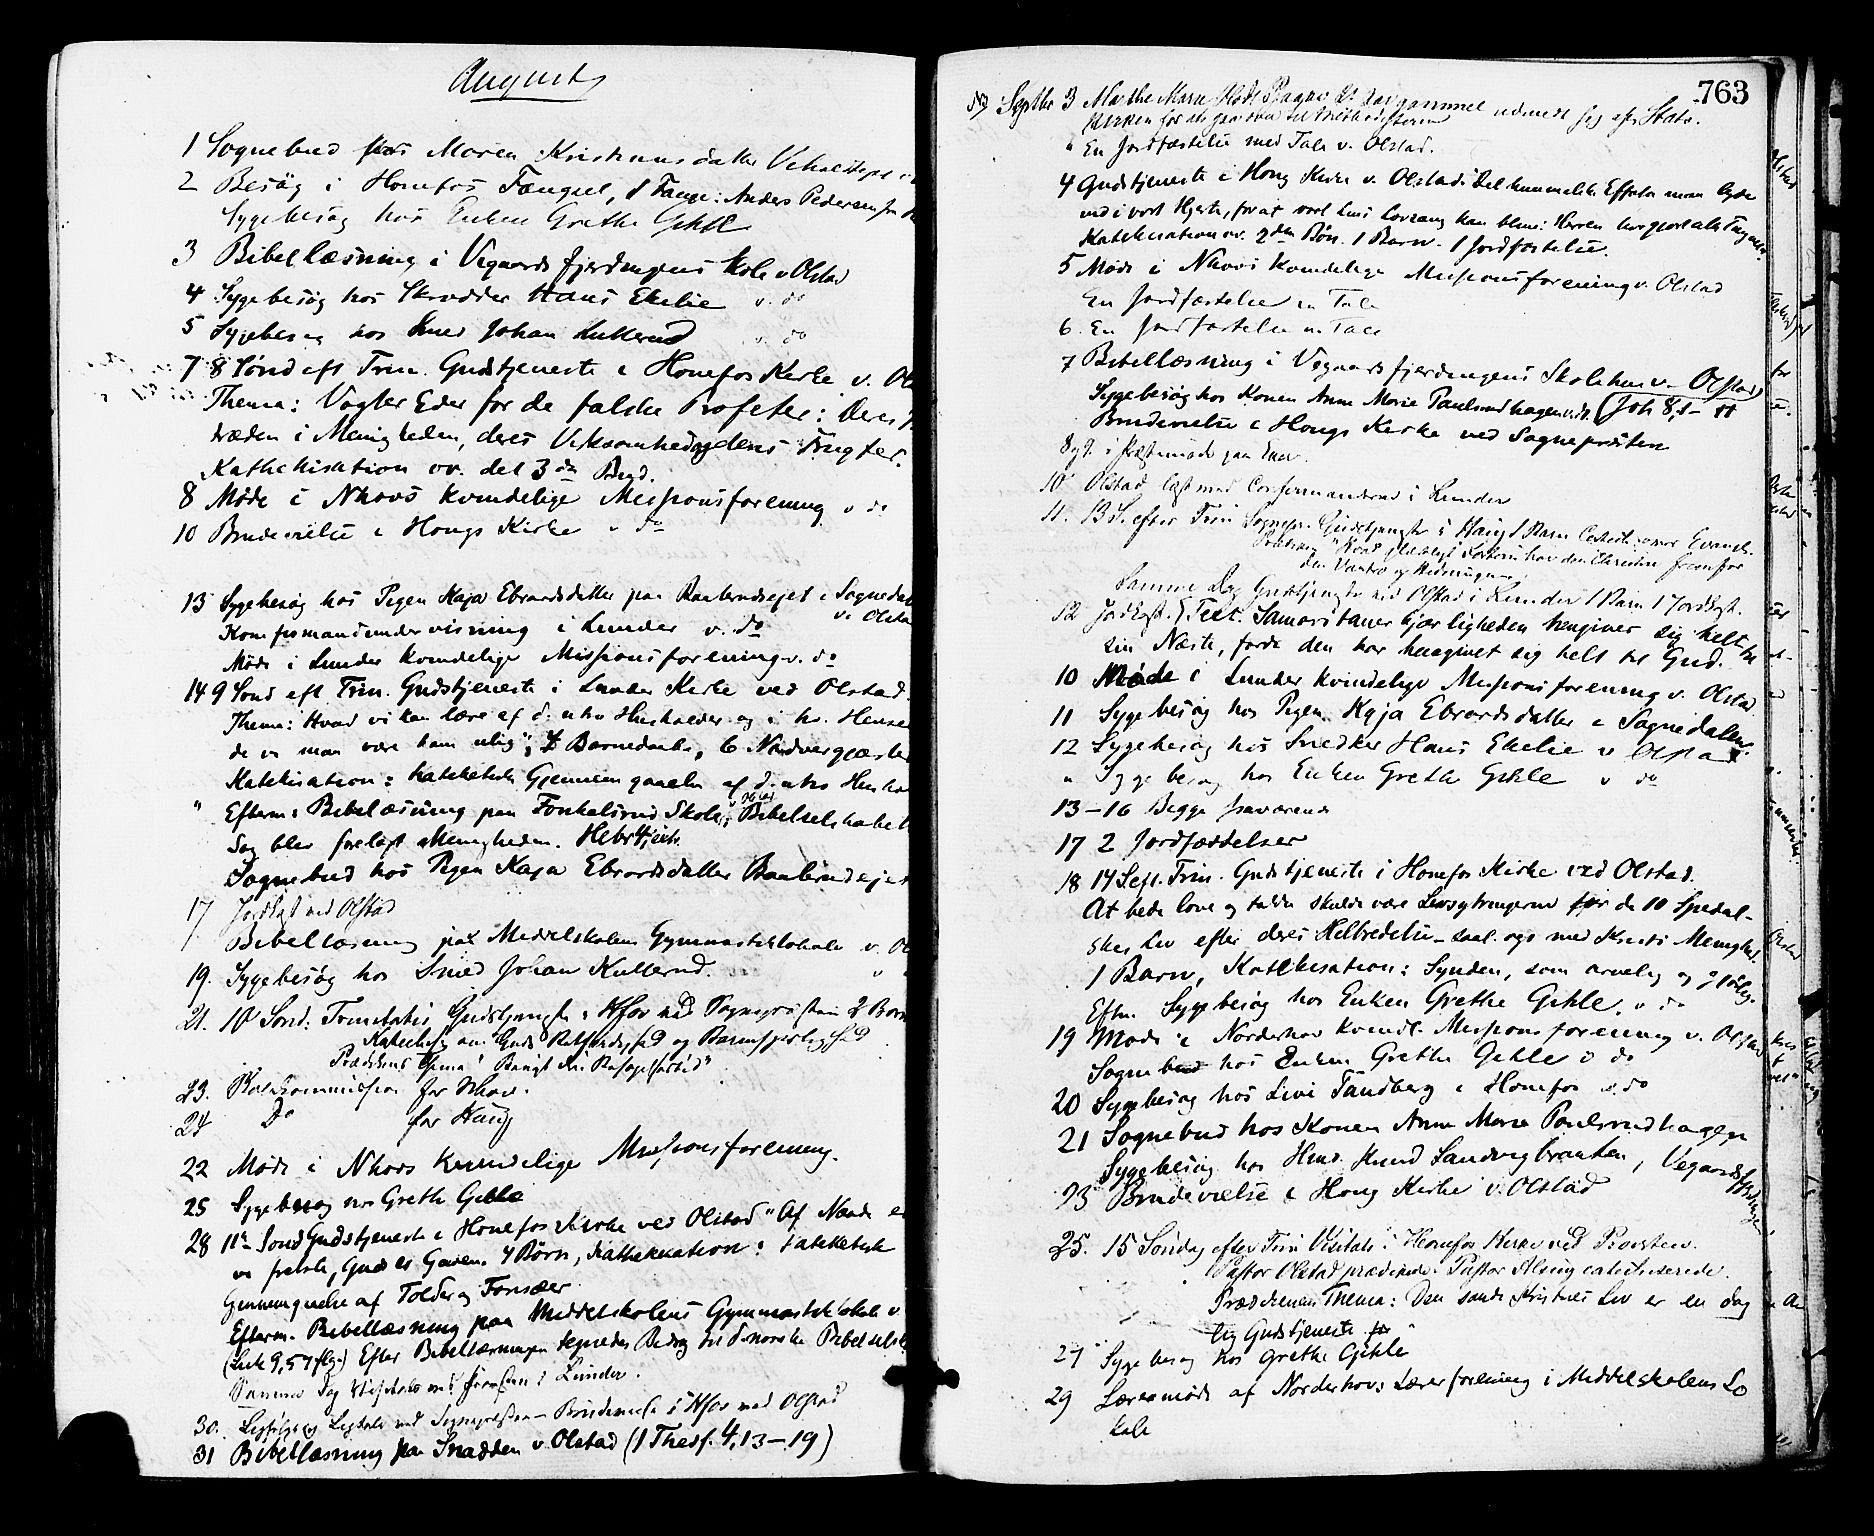 August
1 Sognebud hos Maren Kristiansdatter
2 Besøg i Honefos Fængsel, 1 Fange: Anders Pedersen fra
Sygebesøg hos Enken Grethe Gihle
3 Bibellæsning i Vegaardsfjerdingens Skole v Olstad
4 Sygebesøg hos Skrædder Hans Ekelie v. do
5 Sygebesøg hos Smed Johan Kullerud v. do
7 8 Sønd eft Trin. Gudstjeneste i Honefos Kirke v. Ol
Thema: Vogter Eder for de falske Profeter: Deres
træden i Menigheden, deres Virksomhed og dens Frugter.
Kathekisation ov. det 3de Bud.
8 Møde i Nhovs kvindelige Missionsforening v do
10 Brudevielse i Hougs Kirke v do
13 Sygebesøg hos Pigen Kaja Ebrardsdatter paa i Sognedal
v. Olsta
Konfirmandundervisning i Lunder v. do
Møde i Lunder kvindelige Missionsforening v. do
14 9 Sønd eft Trin. Gudstjeneste i Lunder Kirke ved Olstad.
Thema: Hvad vi kan lære af d. utro Husholder og i hv. Hense
de vi maa være ham ulig", Barnedaab, 6 Nadvergjæster
Katekisation: katekketisk Gjennemgaaelse af d. utro Hush
" Efterm: Bibelæsning paa Fonkalsrud Skole, v Olstad Bibelselskabet
Sag blev forelagt Menigheden. Hebr
Sognebud hos Pigen Kaja Ebrardsdatter
17 Jordfæst ved Olstad
Bibellæsning paa Middelskolens Gymnastiklokale v. Ol
19. Sygebesøg hos Smed Johan Kullerud. " "
21. 10 Sønd. Trinitatis Gudstjeneste i Hfos ved Sognepræsten 2 Børn
Katechis. om Guds Retfærdighed og Barmhjertighed
Prædikens Thema:
23. for Nhov.
24 Do for Haug
22 Møde i Nhovs Kvindelige Missionsforening.
25 Sygebesøg hos Grethe Gihle
28 11te Sønd Gudstjeneste i Honefos Kirke ved Olstad "Af Naade er
vi frelste, Guds er Gaven. 4 Børn, Kathekisation: katekketisk
Gennemgaaelse af Tolder og Farisæer
Efterm. Bibellæsning paa Middelskolens Gymnastiklokale v
(Luk 9,57 flg.) Efter Bibellæsningen tegnedes Bidrag til d. norske Bibelselsk
Samme Dag ved i Lunder.
30. ved Sognepræsten - Brudevielse i Hfos ved Olstad
31 Bibellæsning paa Snadden v. Olstad (1 Thess. 4,13-19)
763
Septbr 3 Marthe Marie udmeldt sig af Stats-
Kirken for at gaa over til
" En Jordfæstelse med Tale v. Olstad.
4 Gudstjeneste i Houg Kirke v. Olstad: Det himmelske Effata maa lyde
ind i vort Hjerte, forat vort Livs Lovsang kan blive: Herren har gjort alle Ting vel.
Katekisation ov. 2den Bøn. 1 Barn. 1 Jordfæstelse.
5 Møde i Nhovs Kvindelige Missionsforening v. Olstad
En Jordfæstelse m Tale
6. En Jordfæstelse m Tale
7 Bibellæsning i Vegaardsfjerdingens Skolehus v. Olstad
Sygebesøg hos Konen Anne Marie Paulsrudhagen (Joh 8,1-11
Brudevielse i Hougs Kirke ved Sognepræsten
8
10 Olstad læst med Confirmanderne i Lunder
11. 13 S. efter Trin Sognepr. Gudstjeneste i Haug 1 Barn
den Vantro og Hedningen
Samme Dag Gudstjeneste ved Olstad i Lunder 1 Barn 1 Jordfæst.
12 Jordfæst. Text. Samaritanerkjærligheden hengiver sig helt til
sin Næste, fordi den har hengivet sig helt til Gud.
10 Møde i Lunder kvindelige Missionsforening v. Olstad
11 Sygebesøg hos Pigen Kaja Ebrardsdatter i Sognedalen.
12 Sygebesøg hos Snedker Hans Ekelie v Olstad
" Sygebesøg hos Enken Grethe Gihle v do
13-16 Begge fraværende
17 2 Jordfæstelser
18 14 S eft. Trin. Gudstjeneste i Honefos Kirke ved Olstad.
At bede love og takke skulde være Livsytringerne for de 10 Spedal-
skes Liv efter deres Helbredelse - saal. ogs med Kristi Menighed.
1 Barn, Katekisation: Synden, som arvelig og
Efterm. Sygebesøg hos Enken Grethe Gihle. v do
19 Møde i Norderhov Kvindl. Missionsforening v. Olstad
Sognebud hos Enken Grethe Gihle v do
20 Sygebesøg hos Livi Tandberg i Honefos v do
21 Sognebud hos Konen Anne Marie Paulsrudhagen
Sygebesøg hos Husm. Knud Sandvigbraaten, Vegaardsfjerdingen
23 Brudevielse i Houg Kirke v. Olstad
25. 15 Søndag efter Trin Visitats i Honefos Kirke ved Provsten.
Pastor Olstad prædikede. Pastor Alsing catechiserede.
Prædikenens Thema: Den sande Kristnes Liv er en dag
lig Gudstjeneste
27 Sygebesøg hos Grethe Gihle
29 Læremøde af Norderhovs Lærerforening i Middelskolens Lo
kale